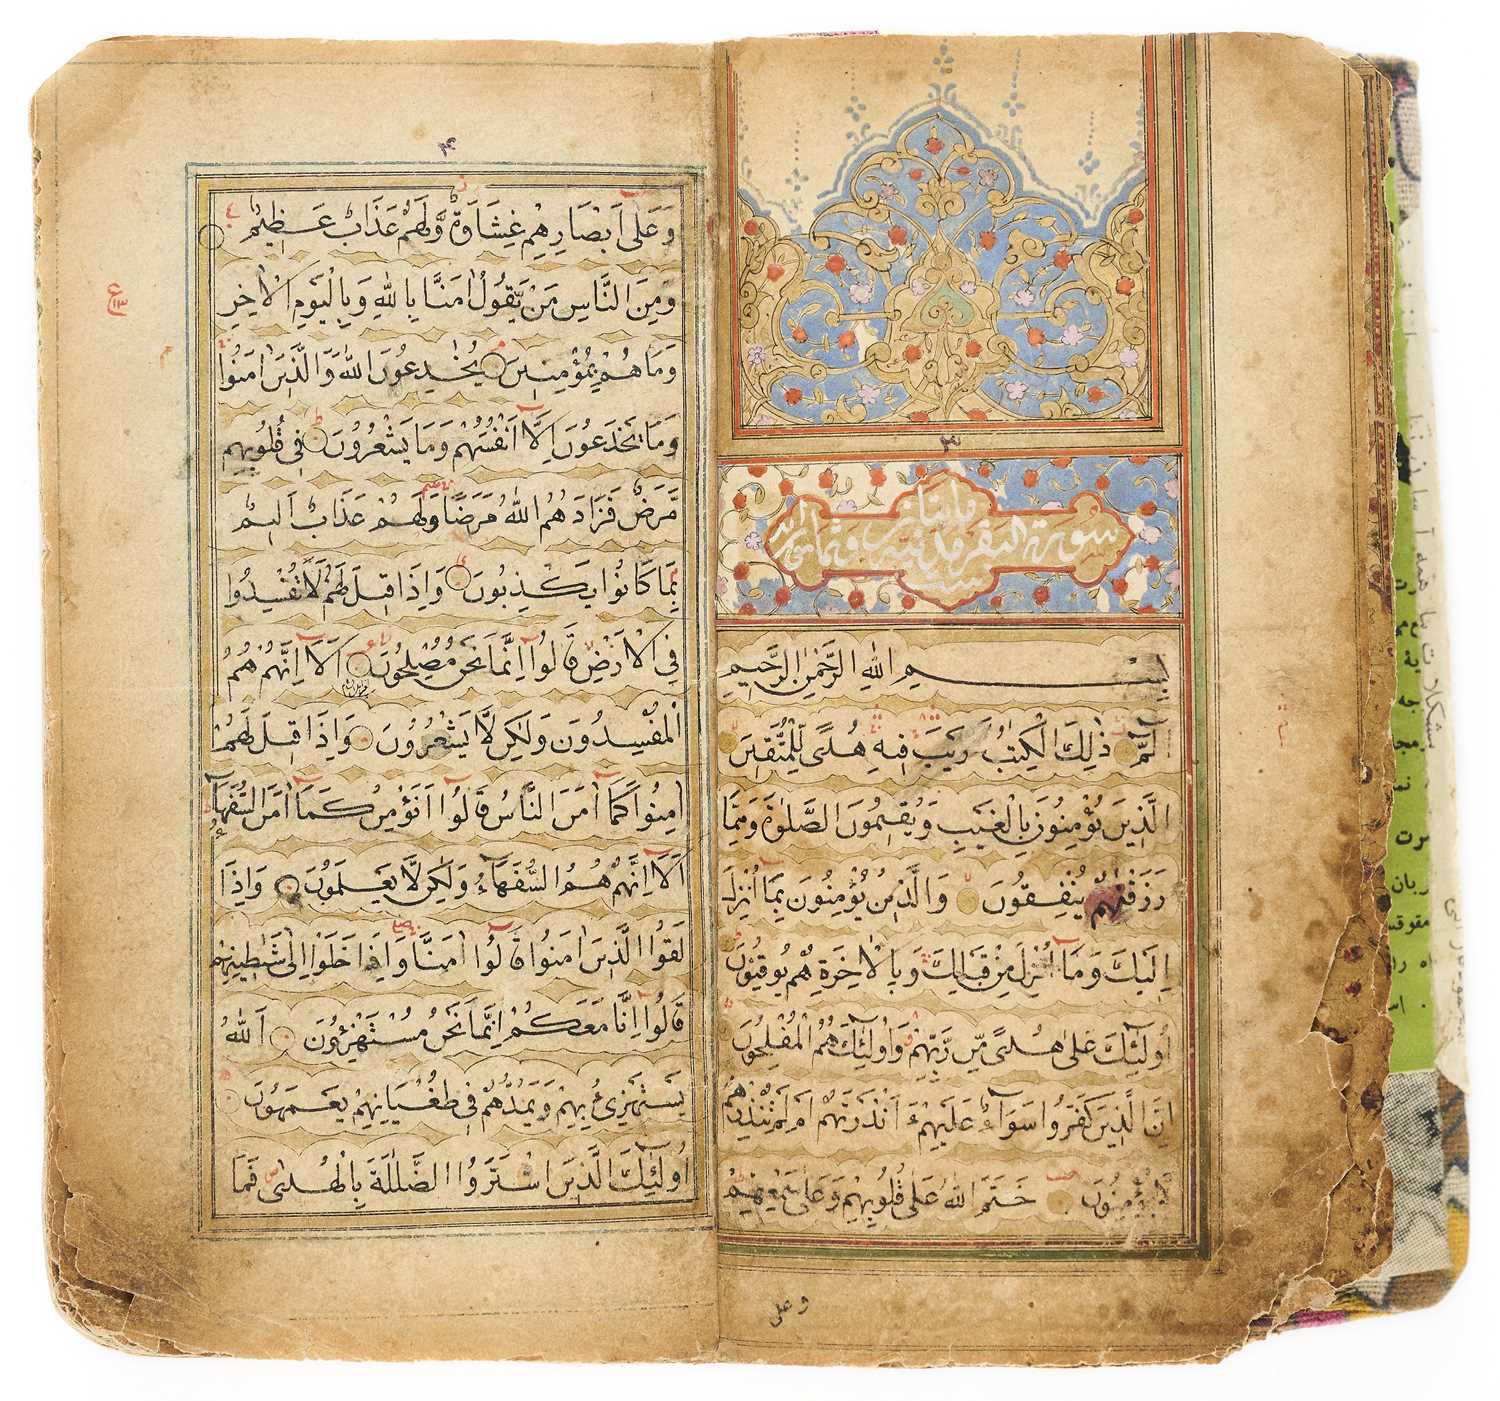 ٣
سورة البقرة مائتان وثمانون
بسم الله الرحمن الرحيم
الٓمّٓ ذٰلِكَ الْكِتٰبُ لَا رَيْبَ فِيهِ هُدًى لِلْمُتَّقِينَ
الَّذِينَ يُؤْمِنُونَ بِالْغَيْبِ وَيُقِيمُونَ الصَّلٰوةَ وَمِمَّا
رَزَقْنٰهُمْ يُنْفِقُونَ وَالَّذِينَ يُؤْمِنُونَ بِمَآ اُنْزِلَ
اِلَيْكَ وَمَآ اُنْزِلَ مِنْ قَبْلِكَ وَبِالْاٰخِرَةِ هُمْ يُوقِنُونَ
اُولٰٓئِكَ عَلٰى هُدًى مِّنْ رَبِّهِمْ وَاُولٰٓئِكَ هُمُ الْمُفْلِحُونَ
اِنَّ الَّذِينَ كَفَرُوا سَوَآءٌ عَلَيْهِمْ ءَاَنْذَرْتَهُمْ اَمْ لَمْ تُنْذِرْهُمْ
لَا يُؤْمِنُونَ خَتَمَ اللّٰهُ عَلٰى قُلُوبِهِمْ وَعَلٰى سَمْعِهِمْ
وعلى
٤
وَعَلٰٓى اَبْصَارِهِمْ غِشَاوَةٌ وَّلَهُمْ عَذَابٌ عَظِيمٌ
وَمِنَ النَّاسِ مَنْ يَّقُولُ اٰمَنَّا بِاللّٰهِ وَبِالْيَوْمِ الْاٰخِرِ
وَمَا هُمْ بِمُؤْمِنِينَ يُخٰدِعُونَ اللّٰهَ وَالَّذِينَ اٰمَنُوا
وَمَا يَخْدَعُونَ اِلَّآ اَنْفُسَهُمْ وَمَا يَشْعُرُونَ فِي قُلُوبِهِمْ
مَّرَضٌ فَزَادَهُمُ اللّٰهُ مَرَضًا وَلَهُمْ عَذَابٌ اَلِيمٌ
بِمَا كَانُوا يَكْذِبُونَ وَاِذَا قِيلَ لَهُمْ لَا تُفْسِدُوا
فِي الْاَرْضِ قَالُوٓا اِنَّمَا نَحْنُ مُصْلِحُونَ اَلَآ اِنَّهُمْ هُمُ
الْمُفْسِدُونَ وَلٰكِنْ لَّا يَشْعُرُونَ وَاِذَا قِيلَ لَهُمْ
اٰمِنُوا كَمَآ اٰمَنَ النَّاسُ قَالُوٓا اَنُؤْمِنُ كَمَآ اٰمَنَ السُّفَهَآءُ
اَلَآ اِنَّهُمْ هُمُ السُّفَهَآءُ وَلٰكِنْ لَّا يَعْلَمُونَ وَاِذَا
لَقُوا الَّذِينَ اٰمَنُوا قَالُوٓا اٰمَنَّا وَاِذَا خَلَوْا اِلٰى شَيٰطِينِهِمْ
قَالُوٓا اِنَّا مَعَكُمْ اِنَّمَا نَحْنُ مُسْتَهْزِءُونَ اَللّٰهُ
يَسْتَهْزِئُ بِهِمْ وَيَمُدُّهُمْ فِي طُغْيَانِهِمْ يَعْمَهُونَ
اُولٰٓئِكَ الَّذِينَ اشْتَرَوُا الضَّلٰلَةَ بِالْهُدٰى فَمَا